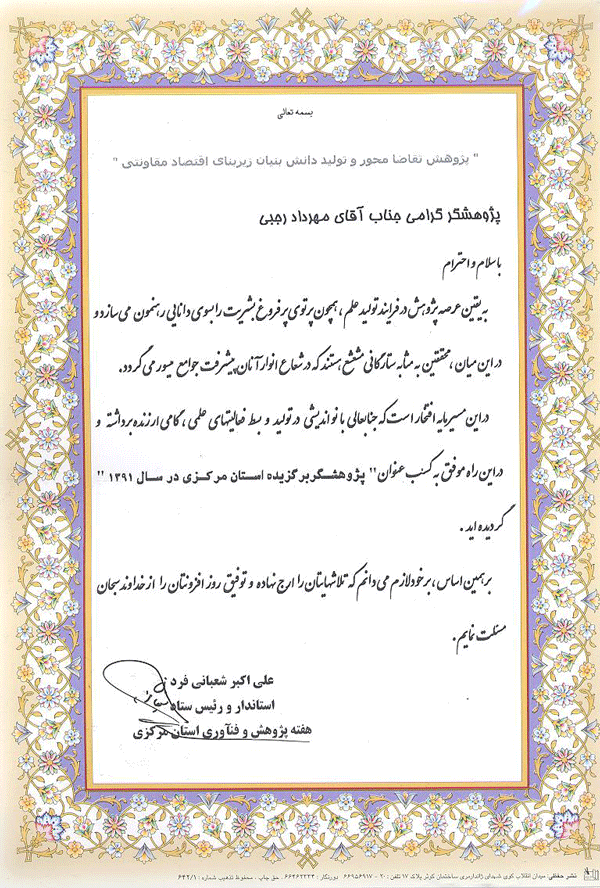 بسمه تعالی
" پژوهش تقاضا محور و تولید دانش بنیان زیربنای اقتصاد مقاومتی "
پژوهشگر گرامی جناب آقای مهرداد رجبی
با سلام و احترام
به یقین عرصه پژوهش در فرایند تولید علم ، همچون پرتوی پر فروغ بشریت را بسوی دانایی رهنمون می سازد و
در این میان ، محققین به مثابه ستارگانی مشعشع هستند که در شعاع انوار آنان پیشرفت جوامع میسور می گردد.
در این مسیر مایه افتخار است که جنابعالی با نواندیشی در تولید و بسط فعالیتهای علمی ، گامی ارزنده برداشته و
در این راه موفق به کسب عنوان " پژوهشگر برگزیده استان مرکزی در سال ۱۳۹۱ "
گردیده اید .
بر همین اساس ، بر خود لازم می دانم که تلاشهایتان را ارج نهاده و توفیق روز افزونتان را از خداوند سبحان
مسئلت نمایم .
علی اکبر شعبانی فرد
استاندار و رئیس ستاد
هفته پژوهش و فنآوری استان مرکزی
نشر حقانی: میدان انقلاب کوی شهدای ژاندارمری ساختمان کوثر پلاک ۱۷ تلفن : ۲۰ - ۶۶۹۵۶۹۱۷ دورنگار : ۶۶۴۶۲۳۳۳ . حق چاپ . محفوظ تذهیب شماره : ۶۴۲/۱